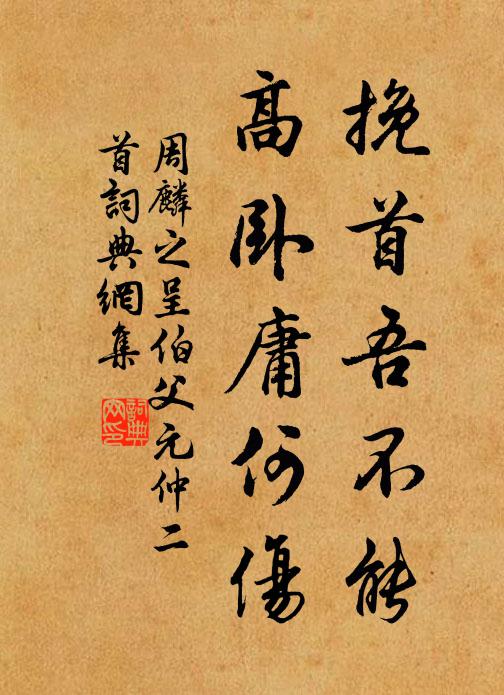 挽首吾不能
高卧庸何傷
周麟之呈伯父元仲二
首詞典網集
詞典
網印